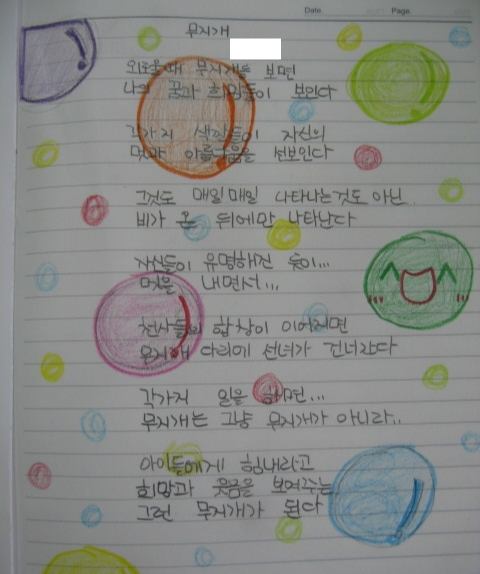 Date. Page.
무지개
외로울때 무지개를 보면
나의 꿈과 희망들이 보인다
각가지 색깔들이 자신의
멋과 아름다움을 선보인다
그것도 매일매일 나타나는것도 아닌
비가 온 뒤에만 나타난다
자신들이 유명해진 듯이...
멋을 내면서...
천사들의 합창이 이어지면
무지개 다리에 선녀가 건너간다
각가지 일을 하면...
무지개는 그냥 무지개가 아니라..
아이들에게 힘내라고
희망과 웃음을 보여주는
그런 무지개가 된다